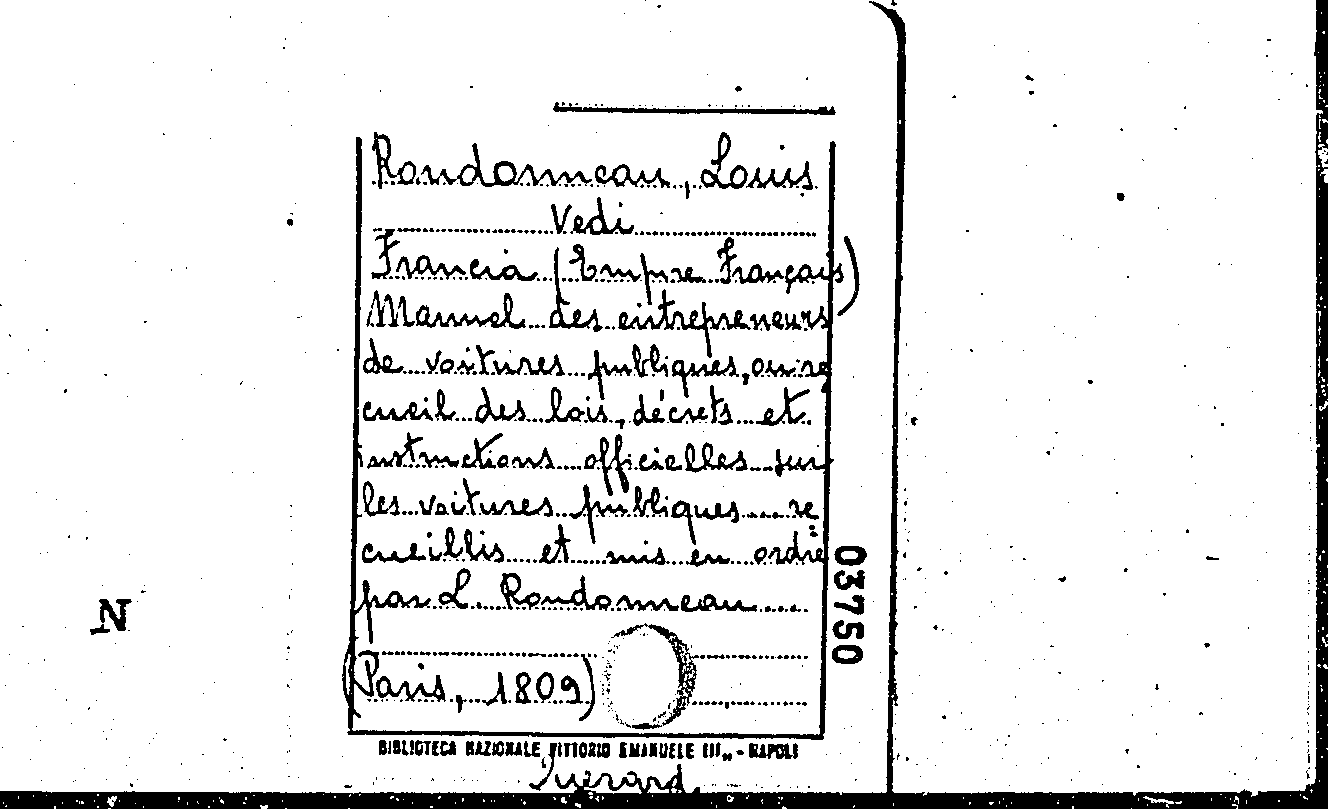 Rondonneau, Louis
Vedi
Francia (Empire Français)
Manuel des entrepreneurs
de voitures publiques, ou re
cueil des lois, décrets et
instructions officielles sur
les voitures publiques... re
cueillis et mis en ordre
par L. Rondonneau....
(Paris, 1809)
03750
N
BIBLIOTECA NAZIONALE VITTORIO EMANUELE III„ - NAPOLI